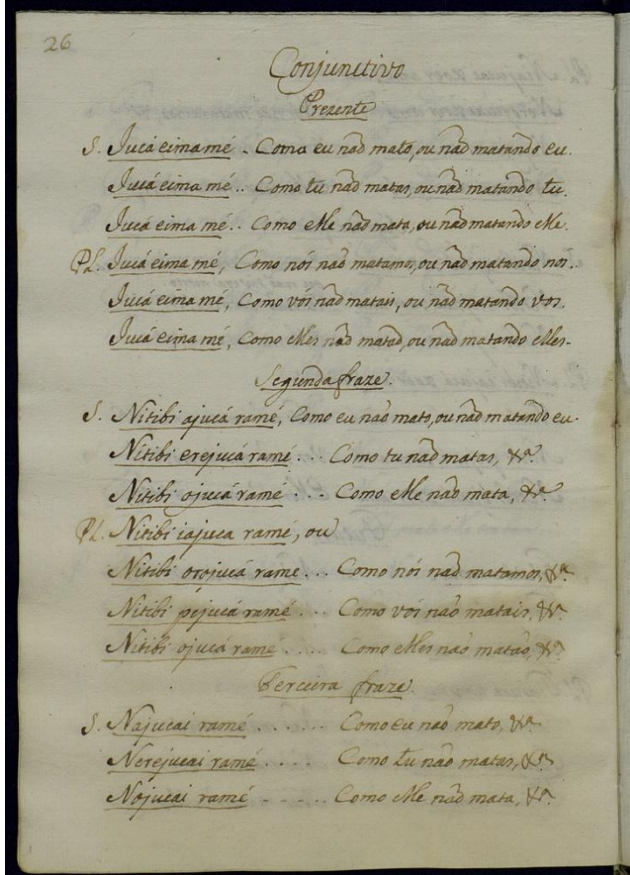 26
Conjunctivo
Prezente
S. Jucá eima mé - Como eu naõ mato, ou naõ matando eu.
Jucá eima mé.. Como tu naõ matas, ou naõ matando tu.
Jucá eima mé.. Como elle naõ mata, ou naõ matando elle.
PL. Jucá eima mé, Como nós naõ matamos, ou naõ matando nos..
Jucá eima mé, Como vós naõ matais, ou naõ matando vos.
Jucá eima mé, Como elles naõ mataõ, ou naõ matando elles-
Segunda fraze.
S. Nitibi ajucá ramé, Como eu naõ mato, ou naõ matando eu.
Nitibi erejucá ramé... Como tu naõ matas, &ª
Nitibi ojucá ramé... Como elle naõ mata, &ª
PL. Nitibi iajuca ramé, ou
Nitibi orojucá rame... Como nós naõ matamos, &ª
Nitibi pejucá ramé... Como vós naõ matais, &ª
Nitibi ojucá ramé.... Como elles naõ mataõ, &ª
Terceira fraze.
S. Najucai ramé...... Como eu naõ mato, &ª
Nerejucai ramé.... Como tu naõ matas, &ª
Nojucai ramé - - - - - Como elle naõ mata, &ª